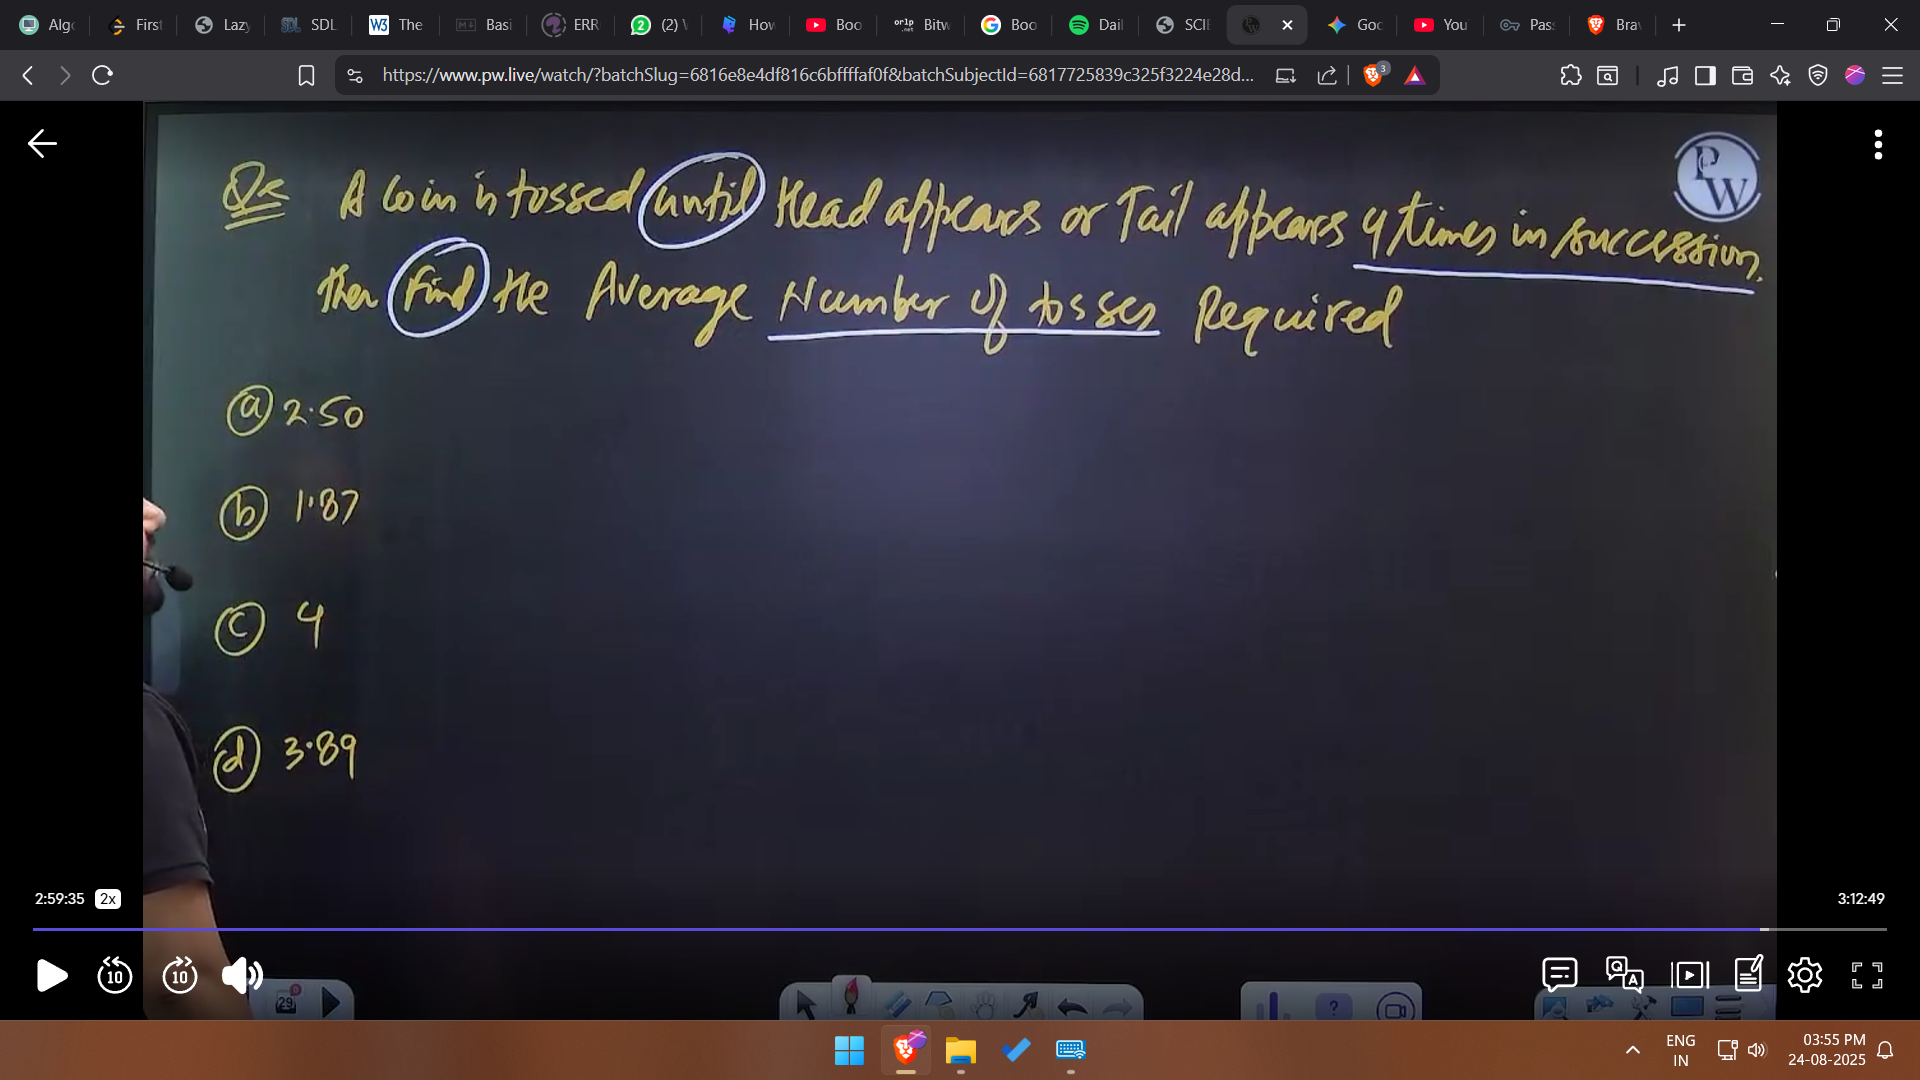 Algo
First
Lazy
SDL
W3 The
Basi
ERR
(2) W
How
Boo
orlp .net Bitw
Boo
Dail
SCIE
Goo
You
Pass
Brav
https://www.pw.live/watch/?batchSlug=6816e8e4df816c6bffffaf0f&batchSubjectId=6817725839c325f3224e28d...
3
PW
Qs A coin is tossed until Head appears or Tail appears 4 times in succession.
then find the Average Number of tosses Required
(a) 2.50
(b) 1.87
(c) 4
(d) 3.89
2:59:35 2x
3:12:49
10
10
29
?
Q A
ENG
IN
03:55 PM
24-08-2025